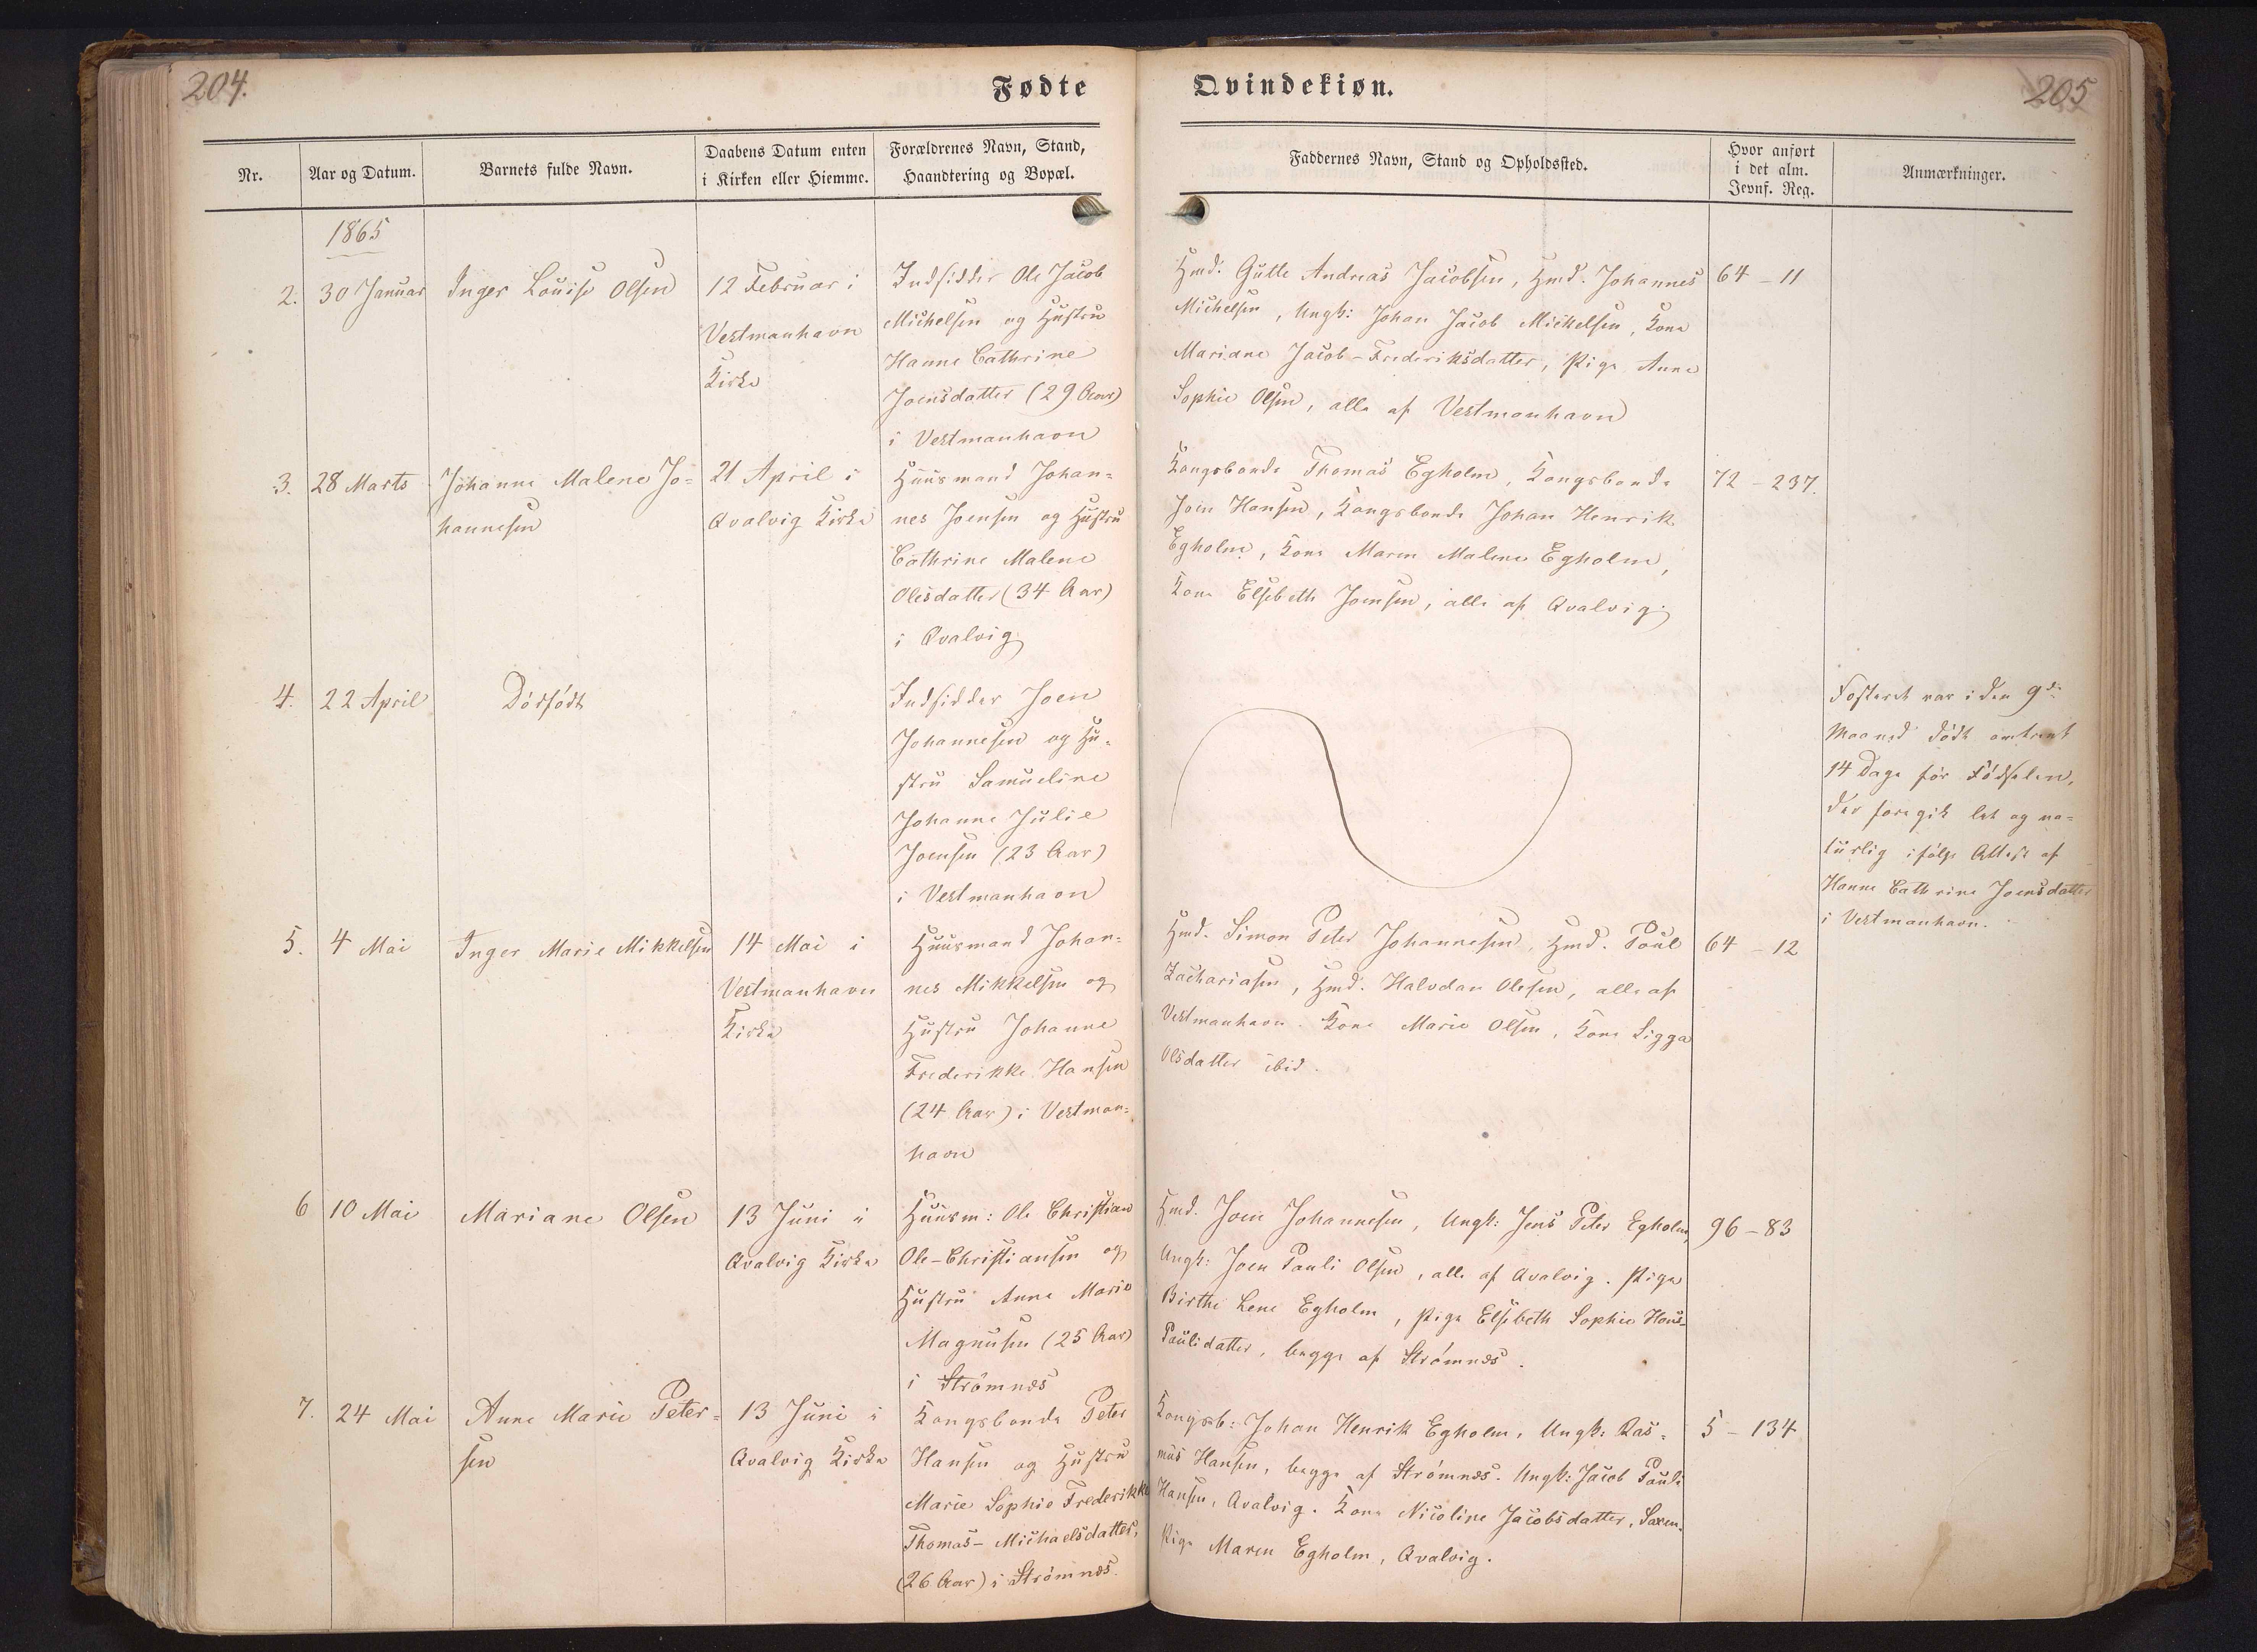 204.
Fødte
Qvindekiøn.
205
Nr.
Aar og Datum.
Barnets fulde Navn.
Daabens Datum enten
i Kirken eller Hiemme.
Forældrenes Navn, Stand,
Haandtering og Bopæl.
Faddernes Navn, Stand og Opholdssted.
Hvor anført
i det alm.
Jevnf. Reg.
Anmærkninger.
1865
2.
30 Januar
Inger Louise Olsen
12 Februar i
Vestmanhavn
Kirke
Indsidder Ole Jacob
Michelsen og Hustru
Hanne Cathrine
Joensdatter (29 Aar)
i Vestmanhavn
Hmd. Gutte Andreas Jacobsen, Hmd. Johannes
Michelsen, Ungk: Johan Jacob Mickelsen, Kone
Mariane Jacob-Frederiksdatter, Pige Anne
Sophie Olsen, alle af Vestmanhavn
64 - 11
3.
28 Marts
Johanne Malene Jo-
hannesen
21 April i
Qvalvig Kirke
Huusmand Johan-
nes Joensen og Hustru
Cathrine Malene
Olesdatter (34 Aar)
i Qvalvig
Kongsbonde Thomas Egholm, Kongsbonde
Joen Hansen, Kongsbonde Johan Henrik
Egholm, Kone Maren Malene Egholm,
Kone Elsebeth Joensen, alle af Qvalvig
72 - 237.
4.
22 April
Dødfødt
Indsidder Joen
Johannesen og Hu-
stru Samueline
Johanne Julie
Joensen (23 Aar)
i Vestmanhavn
Fosteret var i den 9de
Maaned dødt omtrent
14 Dage før Fødselen,
der foregik let og na-
turlig ifølge Attest af
Hanne Cathrine Joensdatter
i Vestmanhavn.
5.
4 Mai
Inger Marie Mikkelsen
14 Mai i
Vestmanhavn
Kirke
Huusmand Johan-
nes Mikkelsen og
Hustru Johanne
Frederikke Hansen
(24 Aar) i Vestman-
havn
Hmd. Simon Peter Johannesen, Hmd. Poul
Zachariasen, Hmd. Halvdan Olesen, alle af
Vestmanhavn. Kone Marie Olsen, Kone Sigga
Olsdatter ibid.
64 - 12
6
10 Mai
Mariane Olsen
13 Juni i
Qvalvig Kirke
Huusm: Ole Christian
Ole-Christiansen og
Hustru Anne Marie
Magnusen (25 Aar)
i Strømnæs
Hmd. Joen Johannesen, Ungk: Jens Peter Egholm,
Ungk: Joen Pauli Olsen, alle af Qvalvig. Pige
Birthe Lene Egholm, Pige Elsebeth Sophie Hans-
Paulidatter, begge af Strømnæs.
96 - 83
7.
24 Mai
Anne Marie Peter-
sen
13 Juni i
Qvalvig Kirke
Kongsbonde Peter
Hansen og Hustru
Marie Sophie Frederikke
Thomas-Michaelsdatter,
(26 Aar) i Strømnæs.
Kongsb: Johan Henrik Egholm, Ungk: Ras-
mus Hansen, begge af Strømnæs. Ungk: Jacob Pauli
Hansen, Qvalvig. Kone Nicoline Jacobsdatter, Saxen.
Pige Maren Egholm, Qvalvig.
5 - 134